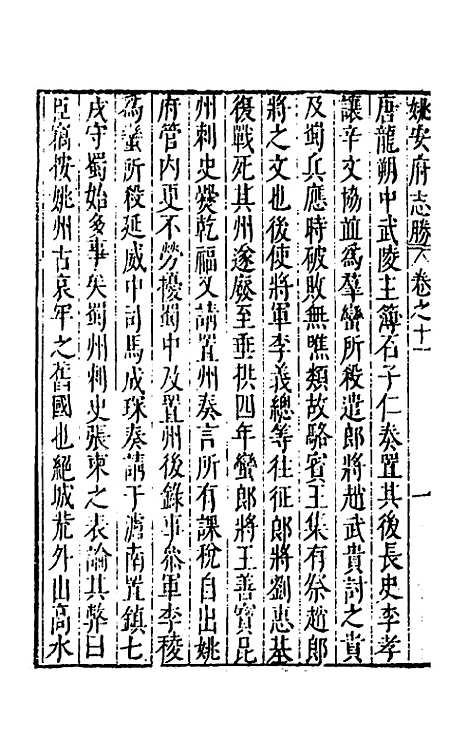 姚安府志勝 卷之十一 一
唐龍朔中武陵主簿石子仁奏置其後長史李孝
讓辛文協並為羣蠻所殺遣郎將趙武貴討之貴
及蜀兵應時破敗無噍類故駱賓王集有祭趙郎
將之文也後使將軍李義總等往征郎將劉惠基
復戰死其州遂廢至垂拱四年蠻郎將王善寶昆
州刺史爨乾福又請置州奏言所有課稅自出姚
府管内更不勞擾蜀中及置州後錄事叅軍李稜
為蠻所殺延威中司馬成琛奏請于瀘南置鎮七
戍守蜀始多事矣蜀州刺史張柬之表論其弊曰
臣竊按姚州古哀牢之舊國也絕域荒外山高水